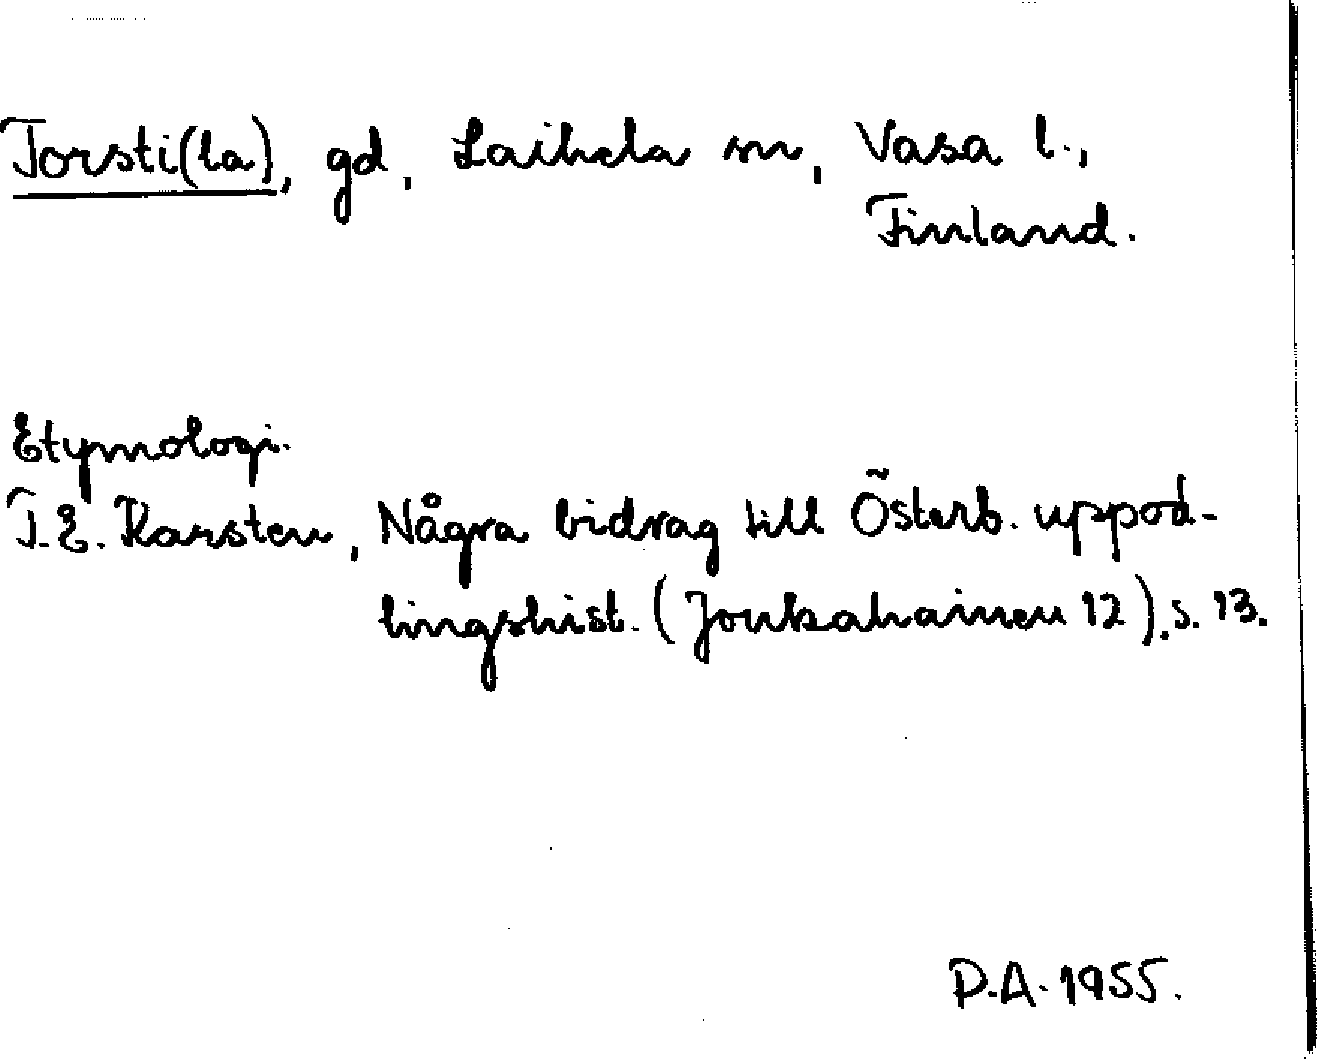 Torsti(la), gd, Laihela sn, Vasa l.,
Finland.
Etymologi.
T.E. Karsten, Några bidrag till Österb. uppod-
lingshist. (Joukahainen 12). s. 13.
D.A. 1955.